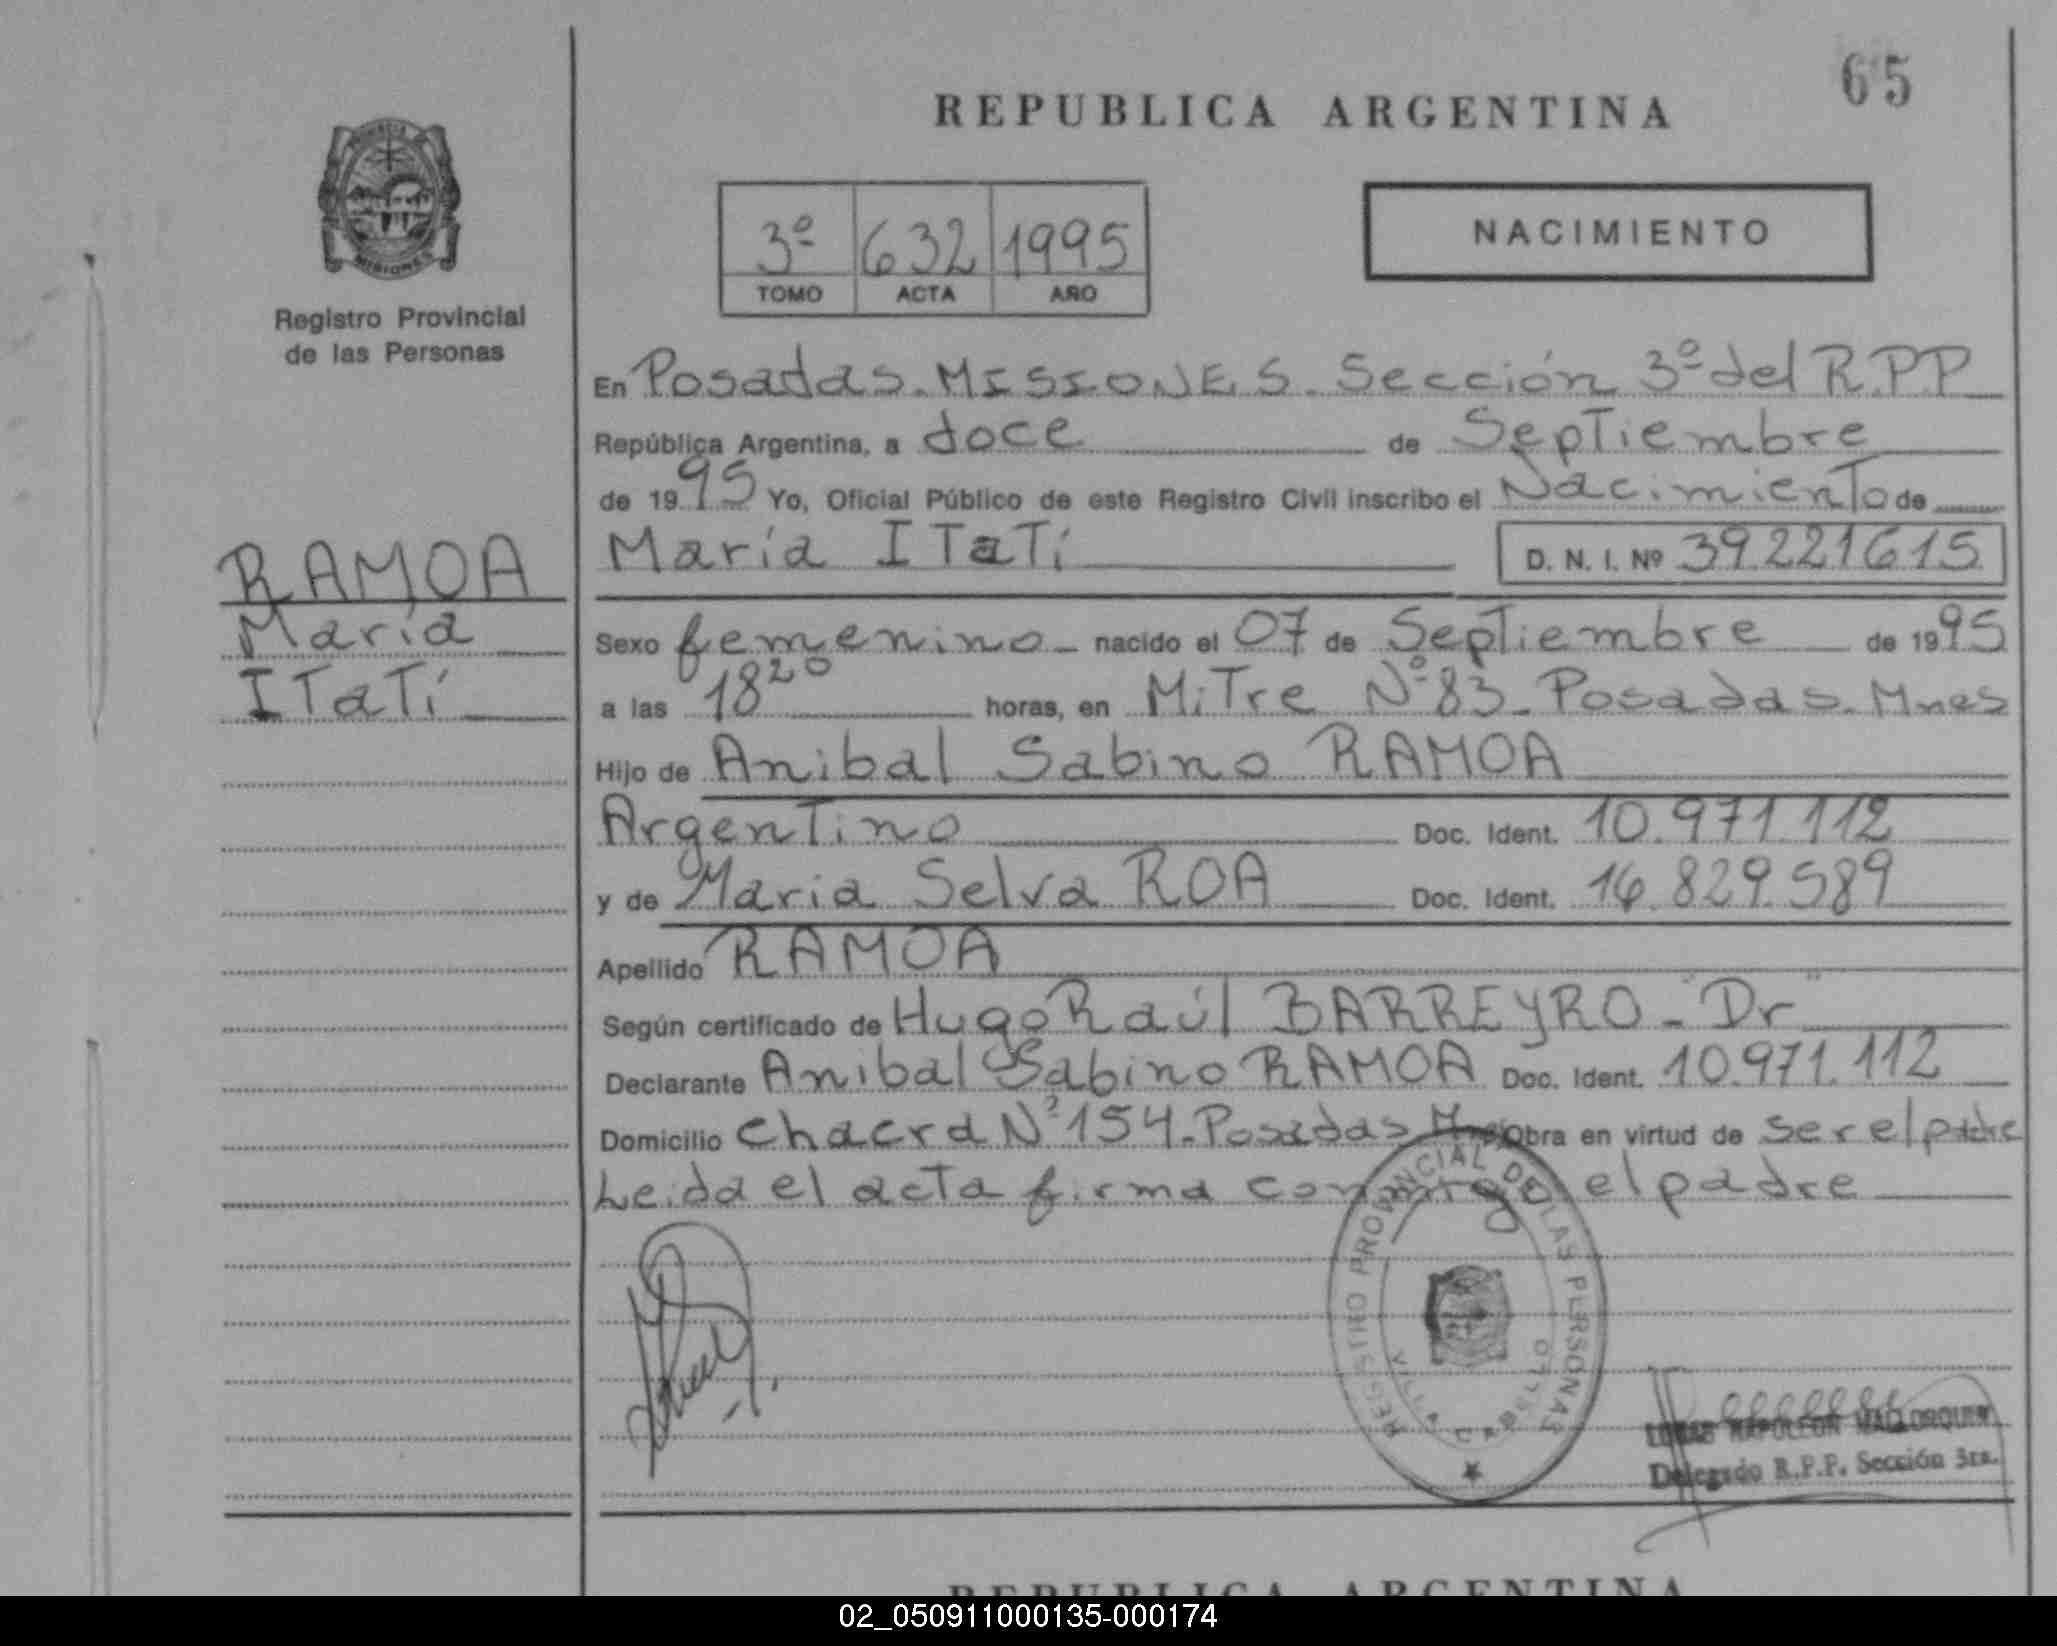 65
REPUBLICA ARGENTINA
3º 632 1995
TOMO ACTA AÑO
NACIMIENTO
MISIONES
Registro Provincial
de las Personas
RAMOA
María
ITaTí
En Posadas. MISIONES. Sección 3º del R.P.P
República Argentina, a doce de Septiembre
de 1995 Yo, Oficial Público de este Registro Civil inscribo el Nacimiento de
María ITaTí D. N. I. Nº 39221615
Sexo femenino nacido el 07 de Septiembre de 1995
a las 18²⁰ horas, en MiTre Nº 83 - Posadas. Mnes
Hijo de Anibal Sabino RAMOA
ArgenTino Doc. Ident. 10.971.112
y de Maria Selva ROA Doc. Ident. 16.829.589
Apellido RAMOA
Según certificado de Hugo Raúl BARREYRO - "Dr"
Declarante Anibal Sabino RAMOA Doc. Ident. 10.971.112
Domicilio Chacra Nº 154 - Posadas Obra en virtud de ser el padre
Leida el acta firma conmigo el padre
REGISTRO PROVINCIAL DE LAS PERSONAS
VILLA CABELLO
LUCAS NAPOLEON MALLORQUIN
Delegado R.P.P. Sección 3ra.
REPUBLICA ARGENTINA
02_050911000135-000174